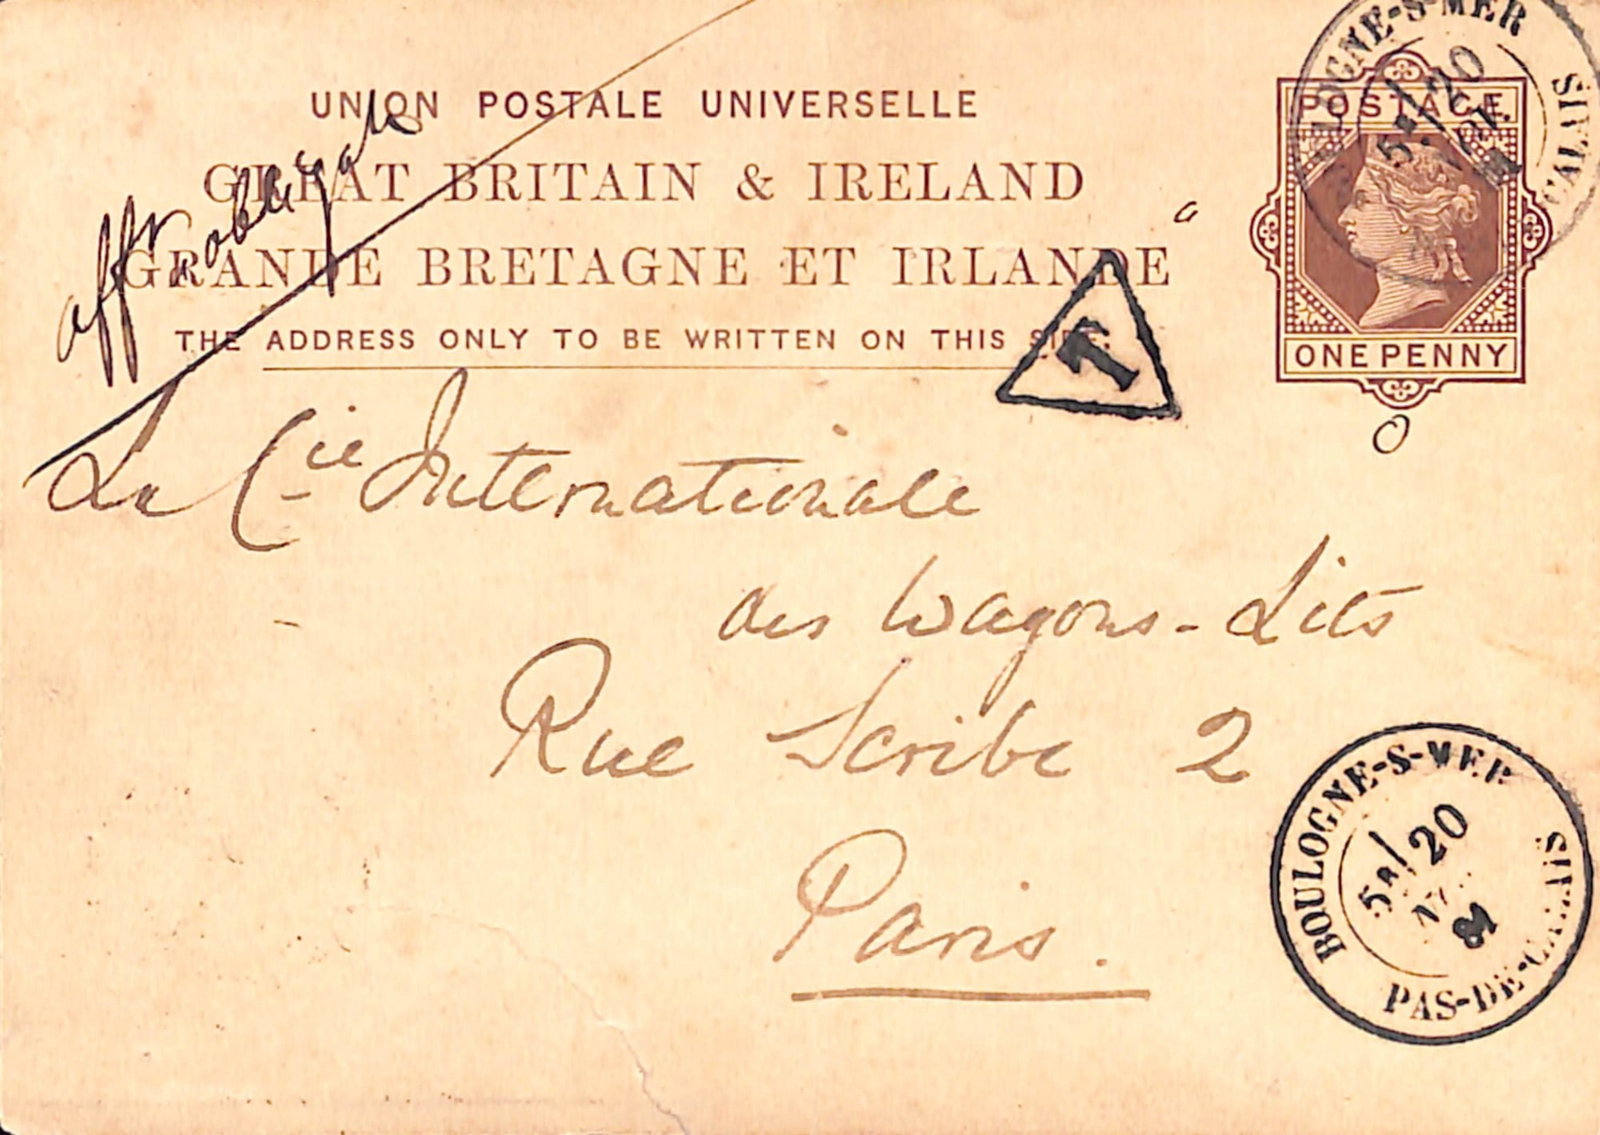 UNION POSTALE UNIVERSELLE
GREAT BRITAIN & IRELAND
GRANDE BRETAGNE ET IRLANDE
THE ADDRESS ONLY TO BE WRITTEN ON THIS SIDE.
affr obligatre
POSTAGE
ONE PENNY
BOULOGNE-S-MER
5E/20
CALAIS
T
La Cie Internationale
des Wagons-Lits
Rue Scribe 2
Paris.
BOULOGNE-S-MER
5E/20
81
PAS-DE-CALAIS